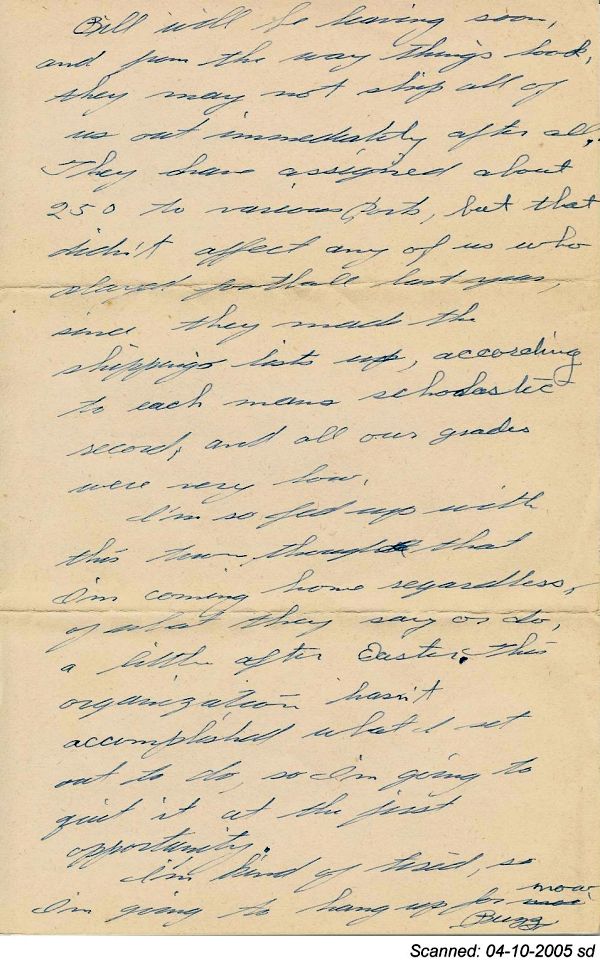 Bill will be leaving soon,
and from the way things look,
they may not ship all of
us out immediately after all.
They have assigned about
250 to various ports, but that
didn't affect any of us who
played football last year,
since they made the
shipping lists up, according
to each mans scholastic
record, and all our grades
were very low.
I'm so fed up with
this town, though that
I'm coming home regardless,
of what they say or do,
a little after Easter. This
organization hasn't
accomplished what I set
out to do, so I'm going to
quit it at the first
opportunity.
I'm kind of tired, so
I'm going to hang up for now
Bugg
Scanned: 04-10-2005 sd